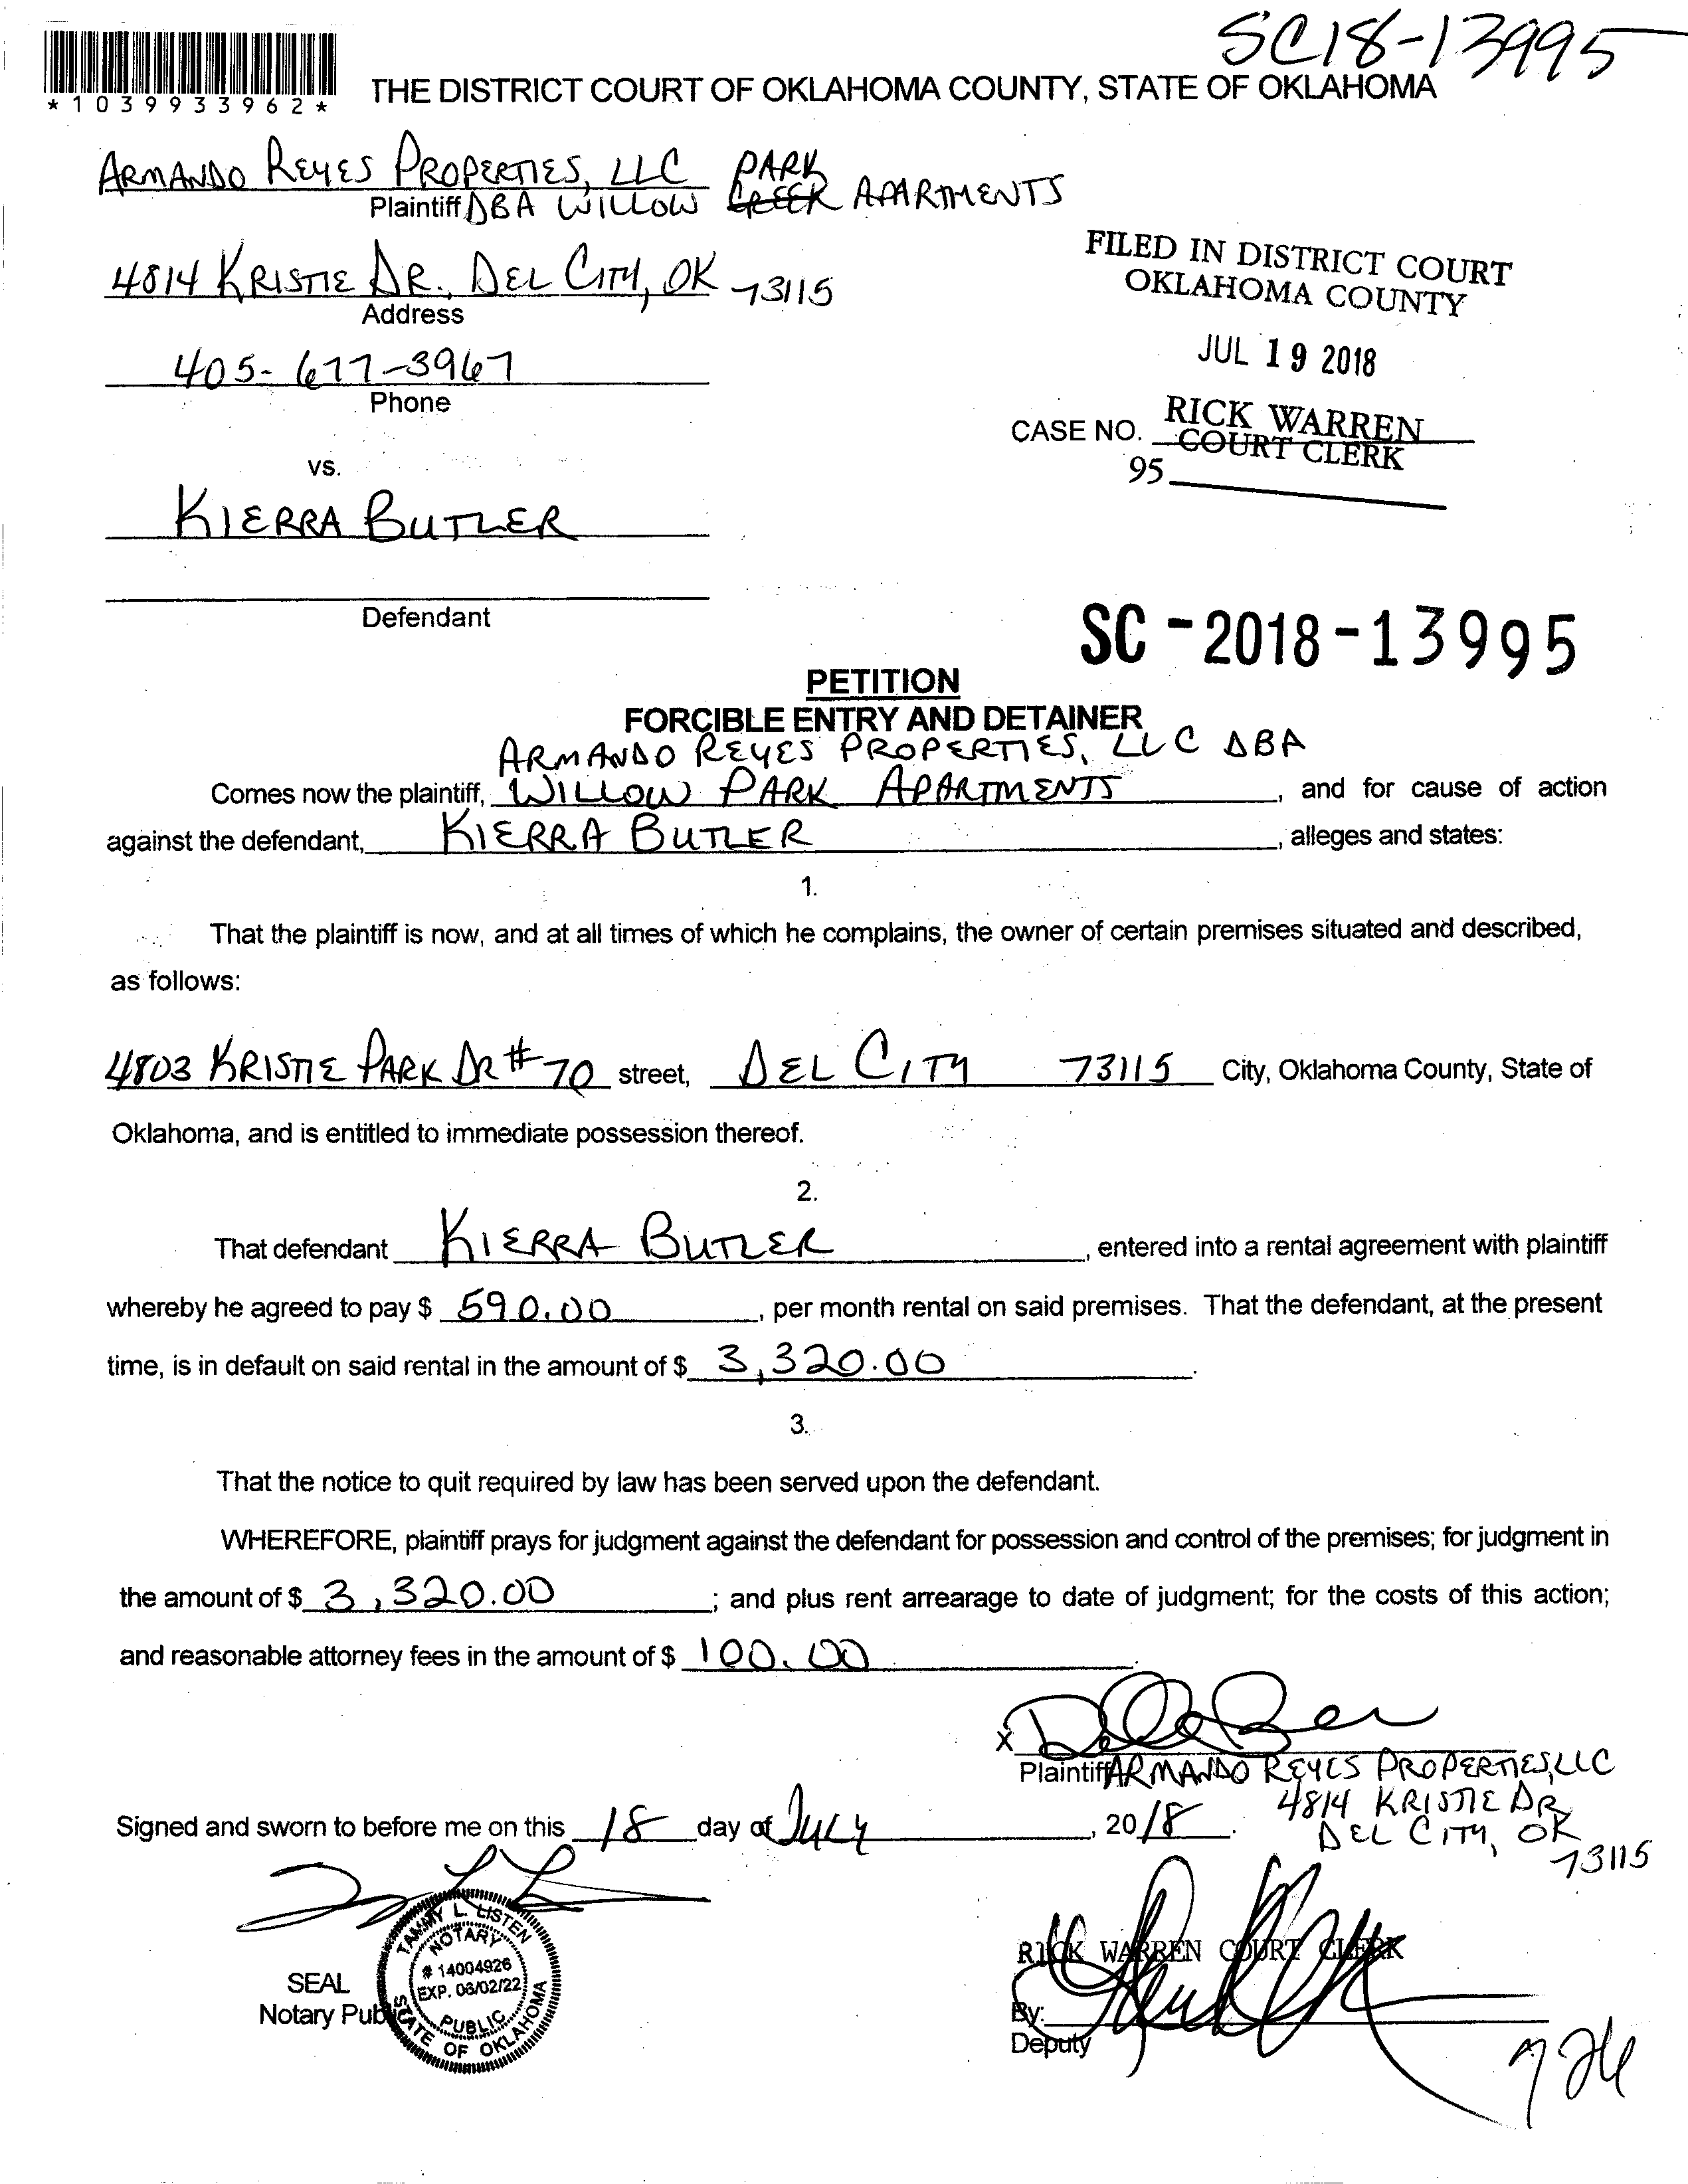 SC18-13995
*1039933962*
THE DISTRICT COURT OF OKLAHOMA COUNTY, STATE OF OKLAHOMA
ARMANDO REYES PROPERTIES, LLC PARK
Plaintiff DBA WILLOW CREEK APARTMENTS
4814 KRISTIE DR., DEL CITY, OK 73115
Address
FILED IN DISTRICT COURT
OKLAHOMA COUNTY
JUL 19 2018
405-677-3967
Phone
RICK WARREN
CASE NO. COURT CLERK
95
vs.
KIERRA BUTLER
Defendant
SC-2018-13995
PETITION
FORCIBLE ENTRY AND DETAINER
ARMANDO REYES PROPERTIES, LLC DBA
Comes now the plaintiff, WILLOW PARK APARTMENTS, and for cause of action
against the defendant, KIERRA BUTLER, alleges and states:
1.
That the plaintiff is now, and at all times of which he complains, the owner of certain premises situated and described,
as follows:
4803 KRISTIE PARK DR #70 street, DEL CITY 73115 City, Oklahoma County, State of
Oklahoma, and is entitled to immediate possession thereof.
2.
That defendant KIERRA BUTLER, entered into a rental agreement with plaintiff
whereby he agreed to pay $ 590.00, per month rental on said premises. That the defendant, at the present
time, is in default on said rental in the amount of $ 3,320.00.
3.
That the notice to quit required by law has been served upon the defendant.
WHEREFORE, plaintiff prays for judgment against the defendant for possession and control of the premises; for judgment in
the amount of $ 3,320.00; and plus rent arrearage to date of judgment; for the costs of this action;
and reasonable attorney fees in the amount of $ 100.00.
X
Plaintiff ARMANDO REYES PROPERTIES, LLC
4814 KRISTIE DR
DEL CITY, OK
73115
Signed and sworn to before me on this 18 day of JULY, 2018.
TAMMY L. LISTEN
NOTARY
# 14004926
EXP. 06/02/22
PUBLIC
STATE OF OKLAHOMA
SEAL
Notary Public
RICK WARREN COURT CLERK
By:
Deputy
726